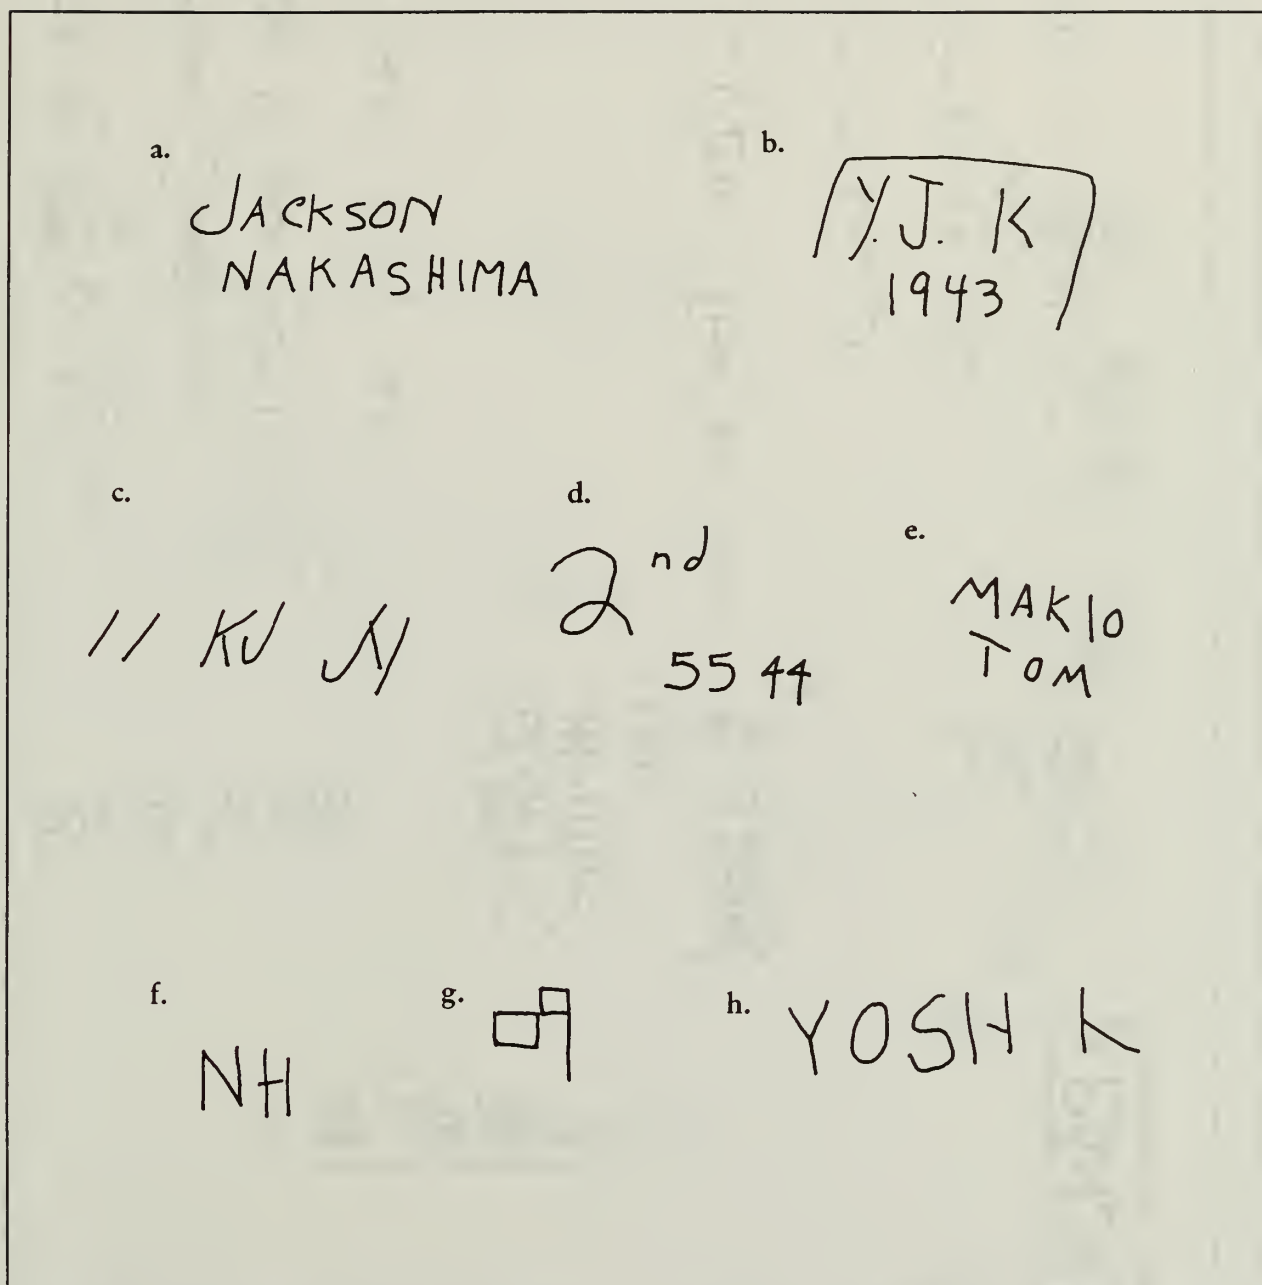 a.
JACKSON
NAKASHIMA
b.
Y.J. K
1943
c.
11 KJ
d.
2nd
5544
e.
MAKIO
TOM
f.
NH
g.
h.
YOSH K